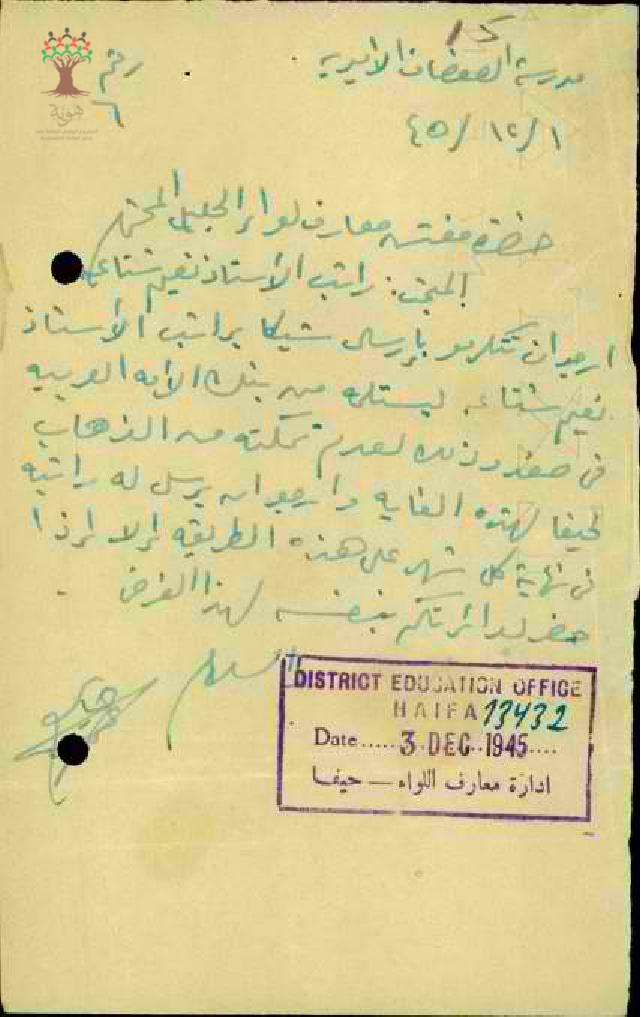 مدرسة الصفصاف الاميريه
رقم
٦
٤٥/١٢/١
حضرة مفتش معارف لواء الجليل المحترم
المبحث: راتب الاستاذ نعيم شتاعه
ارجو ان تتكرموا بإرسال شيكا براتب الأستاذ
نعيم شتاعه ليستلمه من بنك الامه العربيه
في صفد وذلك لعدم تمكنه من الذهاب
لحيفا لهذه الغايه وارجو ان يرسل له راتبه
في نهاية كل شهر على هذه الطريقه إلا إذا
حضر لدائرتكم بنفسه لهذا الغرض .
هوية
DISTRICT EDUCATION OFFICE
HAIFA 13432
Date ..... 3 DEC 1945 ....
ادارة معارف اللواء — حيفا